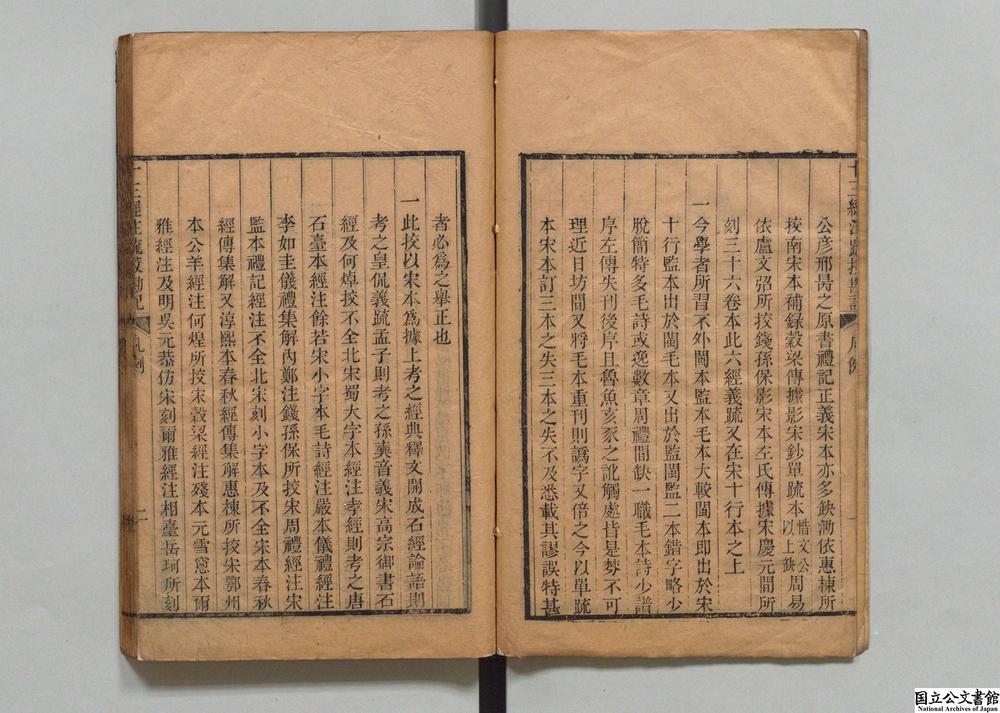 公彥邢昺之原書禮記正義宋本亦多鈌泐依惠棟所
挍南宋本補録穀梁傳據影宋鈔單䟽本惜文公以上缺周易
依盧文弨所挍錢孫保影宋本左氏傳據宋慶元間所
刻三十六卷本此六經義䟽又在宋十行本之上
一今學者所習不外閩本監本毛本大較閩本即出於宋
十行監本出於閩毛本又出於監閩監二本錯字略少
脫簡特多毛詩或逸數章周禮間缺一職毛本詩少譜
序左傳失刊後序且魯魚亥豕之訛觸處皆是棼不可
理近日坊間又將毛本重刊則譌字又倍之今以單䟽
本宋本訂三本之失三本之失不及悉載其謬誤特甚
者必爲之舉正也
一此挍以宋本爲據上考之經典釋文開成石經論語則
考之皇侃義䟽孟子則考之孫奭音義宋高宗御書石
經及何焯挍不全北宋蜀大字本經注孝經則考之唐
石臺本經注餘若宋小字本毛詩經注嚴本儀禮經注
李如圭儀禮集解內鄭注錢孫保所挍宋周禮經注宋
監本禮記經注不全北宋刻小字本及不全宋本春秋
經傳集解又淳熙本春秋經傳集解惠棟所挍宋鄂州
本公羊經注何煌所挍宋穀梁經注殘本元雪窻本爾
雅經注及明吳元恭仿宋刻爾雅經注相臺岳珂所刻
十三經注疏挍勘記
凡例
二
国立公文書館
National Archives of Japan